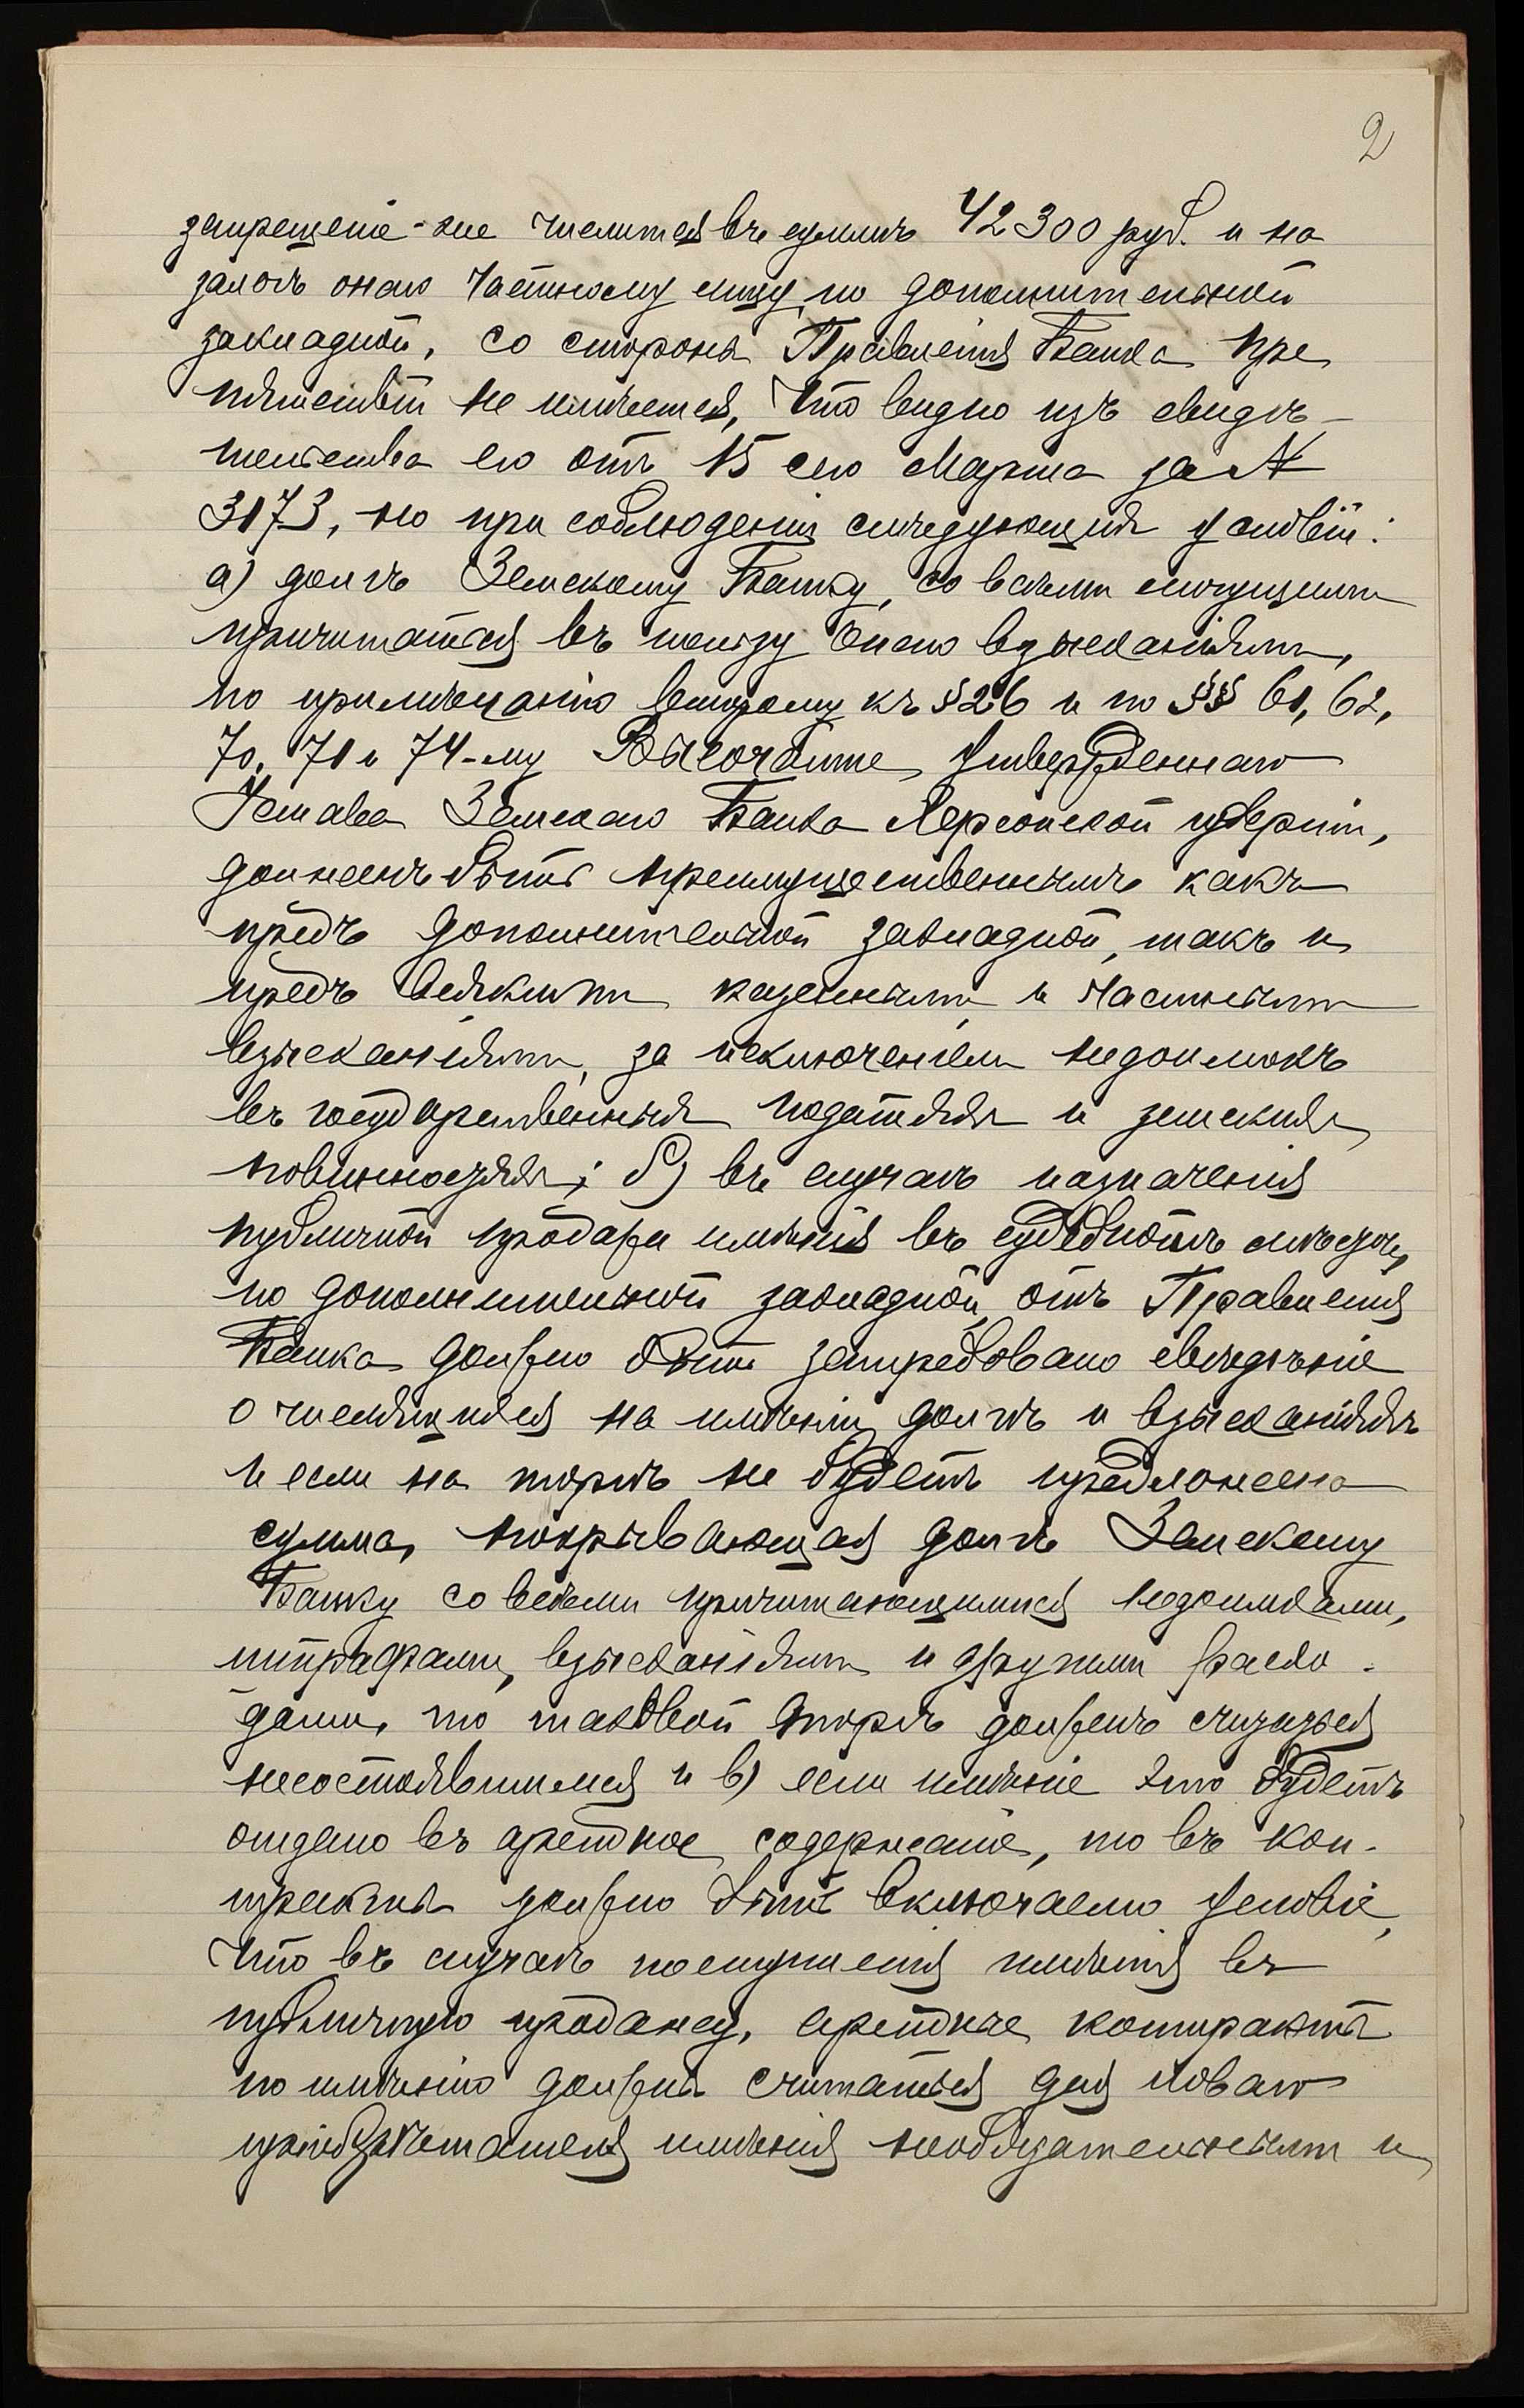 2
запрещеніе-же числится въ суммѣ 42300 руб. и на
залогъ онаго частному лицу, по дополнительной
закладной, со стороны Правленія Банка пре
пятствій не имѣется, что видно изъ свидѣ-
тельства его отъ 15 сего Марта за №
3173, но при соблюденіи слѣдующихъ условій:
а) долгъ Земскому Банку, со всѣми могущими
причитаться въ пользу онаго взысканіями,
по примѣчанію второму къ § 26 и по §§ 61, 62,
70, 71 и 74-му Высочайше утвержденнаго
Устава Земскаго Банка Херсонской губерніи,
долженъ быть преимущественнымъ какъ
предъ дополнительной закладной, такъ и
предъ всякими казенными и частными
взысканіями, за исключеніемъ недоимокъ
въ государственныхъ податяхъ и земскихъ
повинностяхъ; б) въ случаѣ назначенія
публичной продажи имѣнія въ судебномъ мѣстѣ,
по дополнительной закладной, отъ Правленія
Банка должно быть затребовано свѣдѣніе
о числящихся на имѣніи долгѣ и взысканіяхъ
и если на торгѣ не будетъ предложена
сумма, покрывающая долгъ Земскому
Банку со всѣми причитающимися недоимками,
штрафами, взысканіями и другими расхо-
дами, то таковой торгъ долженъ считаться
несостоявшимся и в) если имѣніе это будетъ
отдано въ арендное содержаніе, то въ кон-
трактъ должно быть включаемо условіе,
что въ случаѣ поступленія имѣнія въ
публичную продажу, арендные контракты
по имѣнію должны считаться для новаго
пріобрѣтателя имѣнія необязательными и